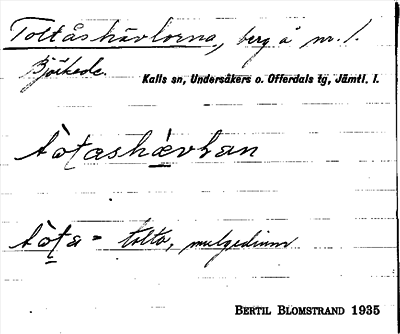 Toltåshävlorna, berg å m. l.
Björkede.
Kalls sn, Undersåkers o. Offerdals tg, Jämtl. l.
tòtashævḷan
tòta = tolta, mulgedium
BERTIL BLOMSTRAND 1935